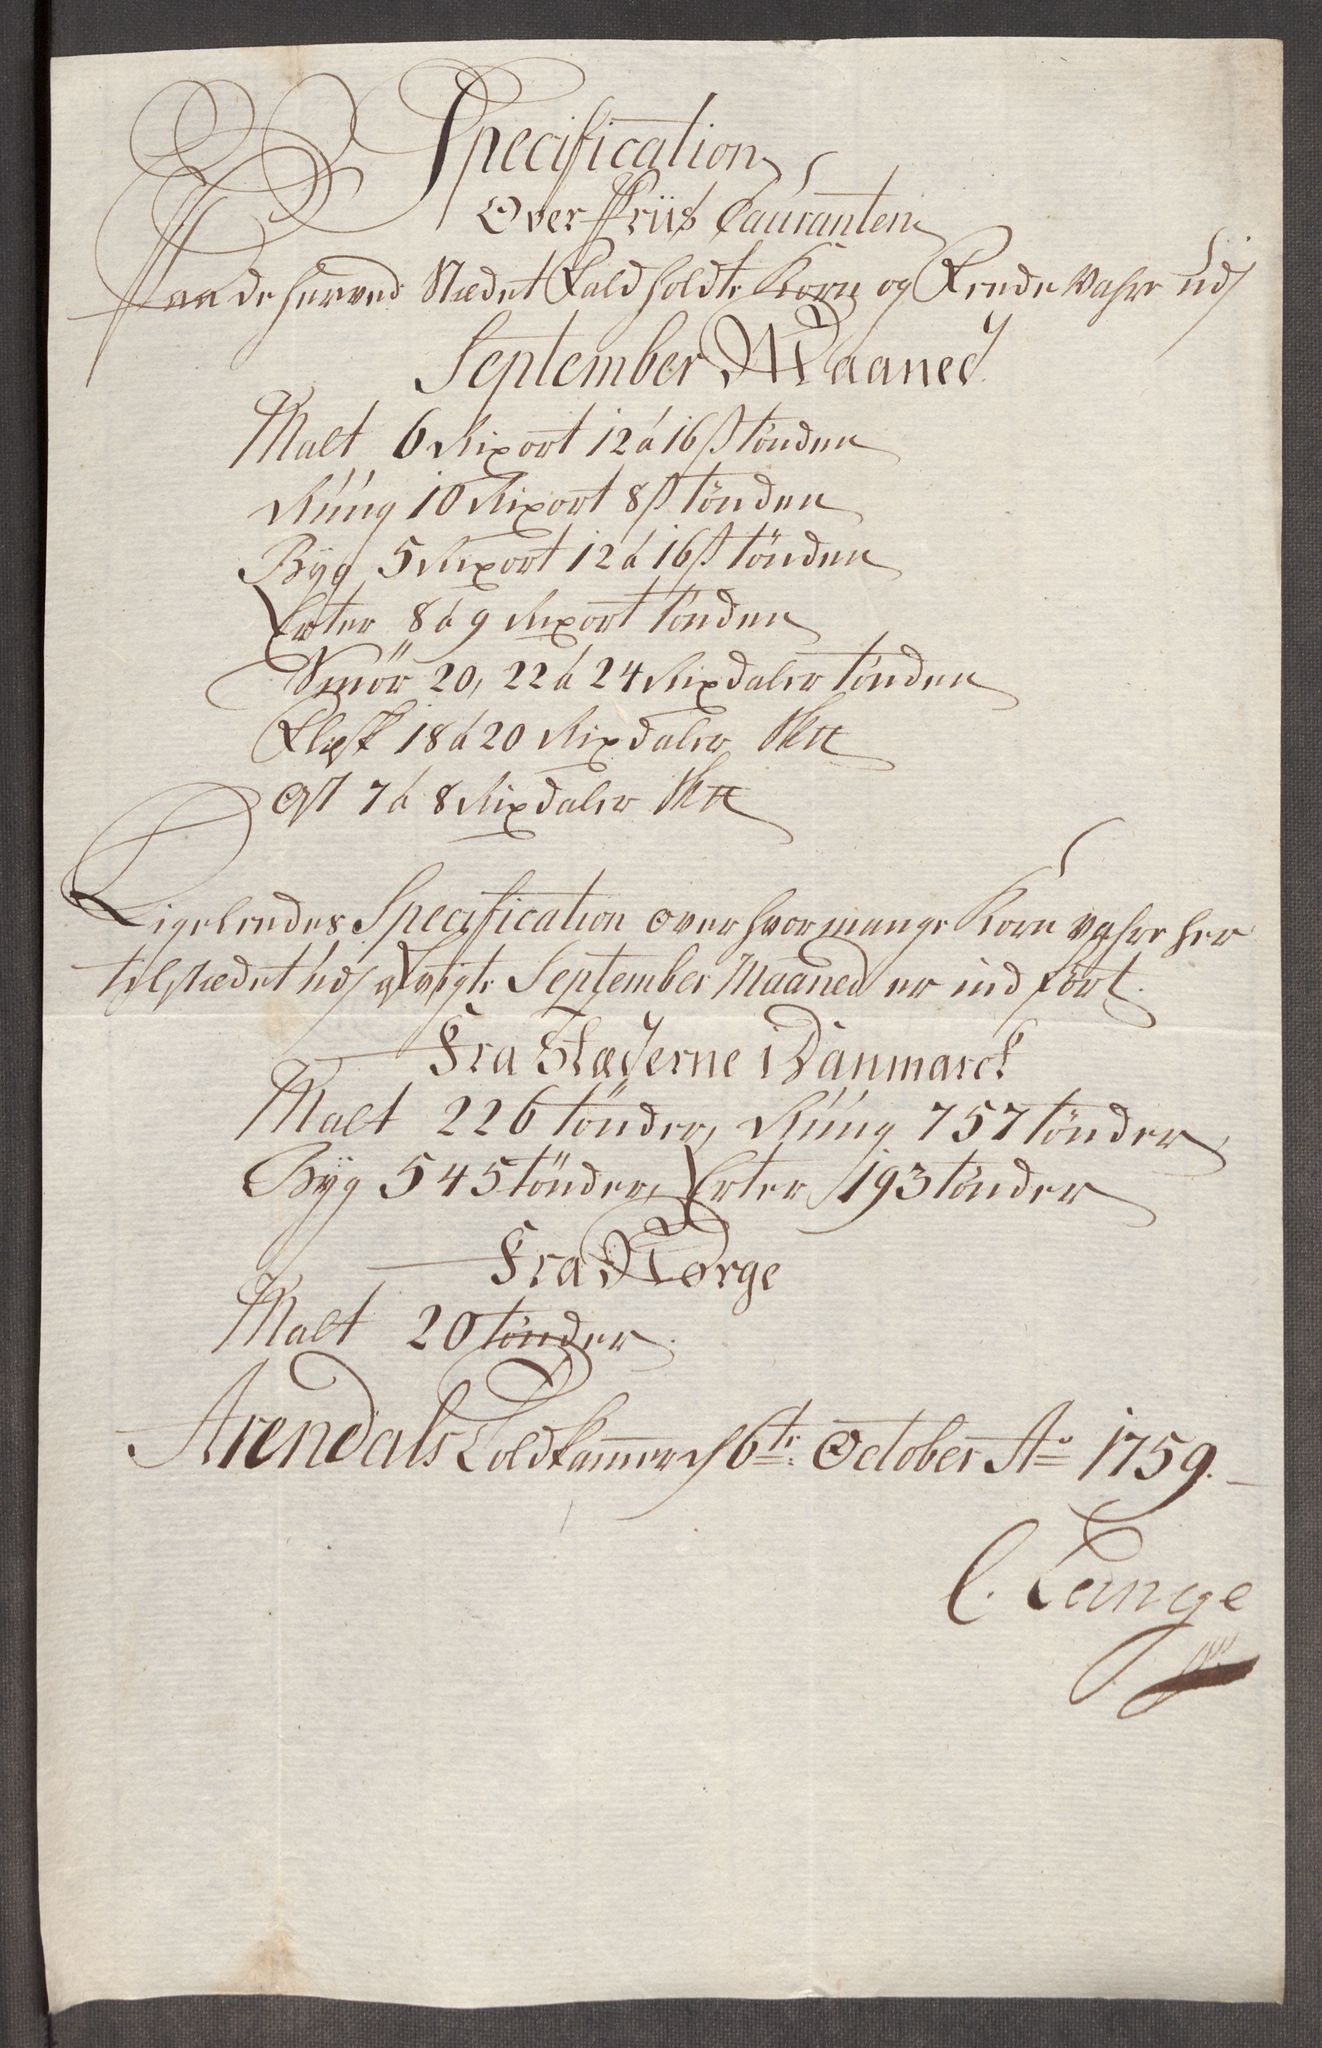 Specification
Over Priis Couranten
Paa de herved Stædet Fald holdte Korn og Fæde Vahre udj
September Maaned
Malt 6 Rixort 12 á 16 ß tönden
Rúúg 10 Rixort 8 ß tönden
Byg 5 Rixort 12 á 16 ß tönden
Erter 8 á 9 Rixort tönden
Smör 20, 22 á 24 Rixdaler tönden
Flæsk 18 á 20 Rixdaler
Ost 7 á 8 Rixdaler
Ligeledes Specification over hvor mange Korn vahre her
til stædet udj September Maaned er ind fört.
Fra Stæderne i Danmarck
Malt 226 tönder, Rúúg 757 tönder
Byg 545 tönder, Erter 193 tönder
Fra Norge
Malt 20 tönder.
Arendals Toldkammer d 6te October Ao 1759.
C. Lange